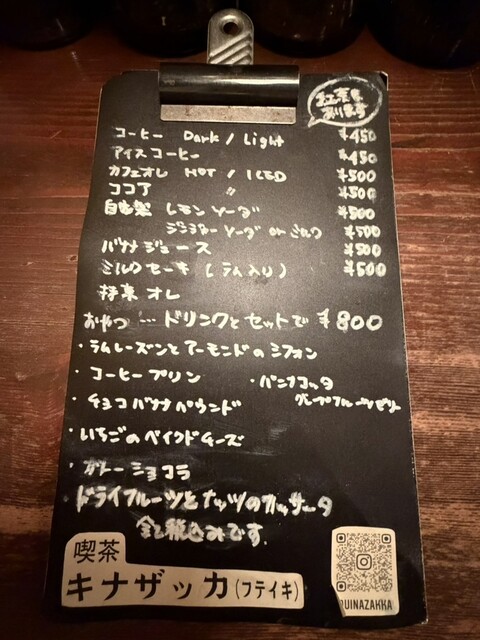 紅茶も
あります
コーヒー Dark / Light ¥450
アイスコーヒー ¥450
カフェオレ HOT / ICED ¥500
ココア 〃 ¥500
自家製 レモンソーダ ¥500
ジンジャーソーダ or ミルク ¥500
バナナジュース ¥500
ミルクセーキ (ラム入り) ¥500
抹茶オレ
おやつ … ドリンクとセットで ¥800
・ラムレーズンとアーモンドのシフォン
・コーヒープリン ・パンナコッタ
グレープフルーツゼリー
・チョコバナナパウンド
・いちごのベイクドチーズ
・ガトーショコラ
・ドライフルーツとナッツのカッサータ
全て税込みです.
喫茶
キナザッカ(フテイキ)